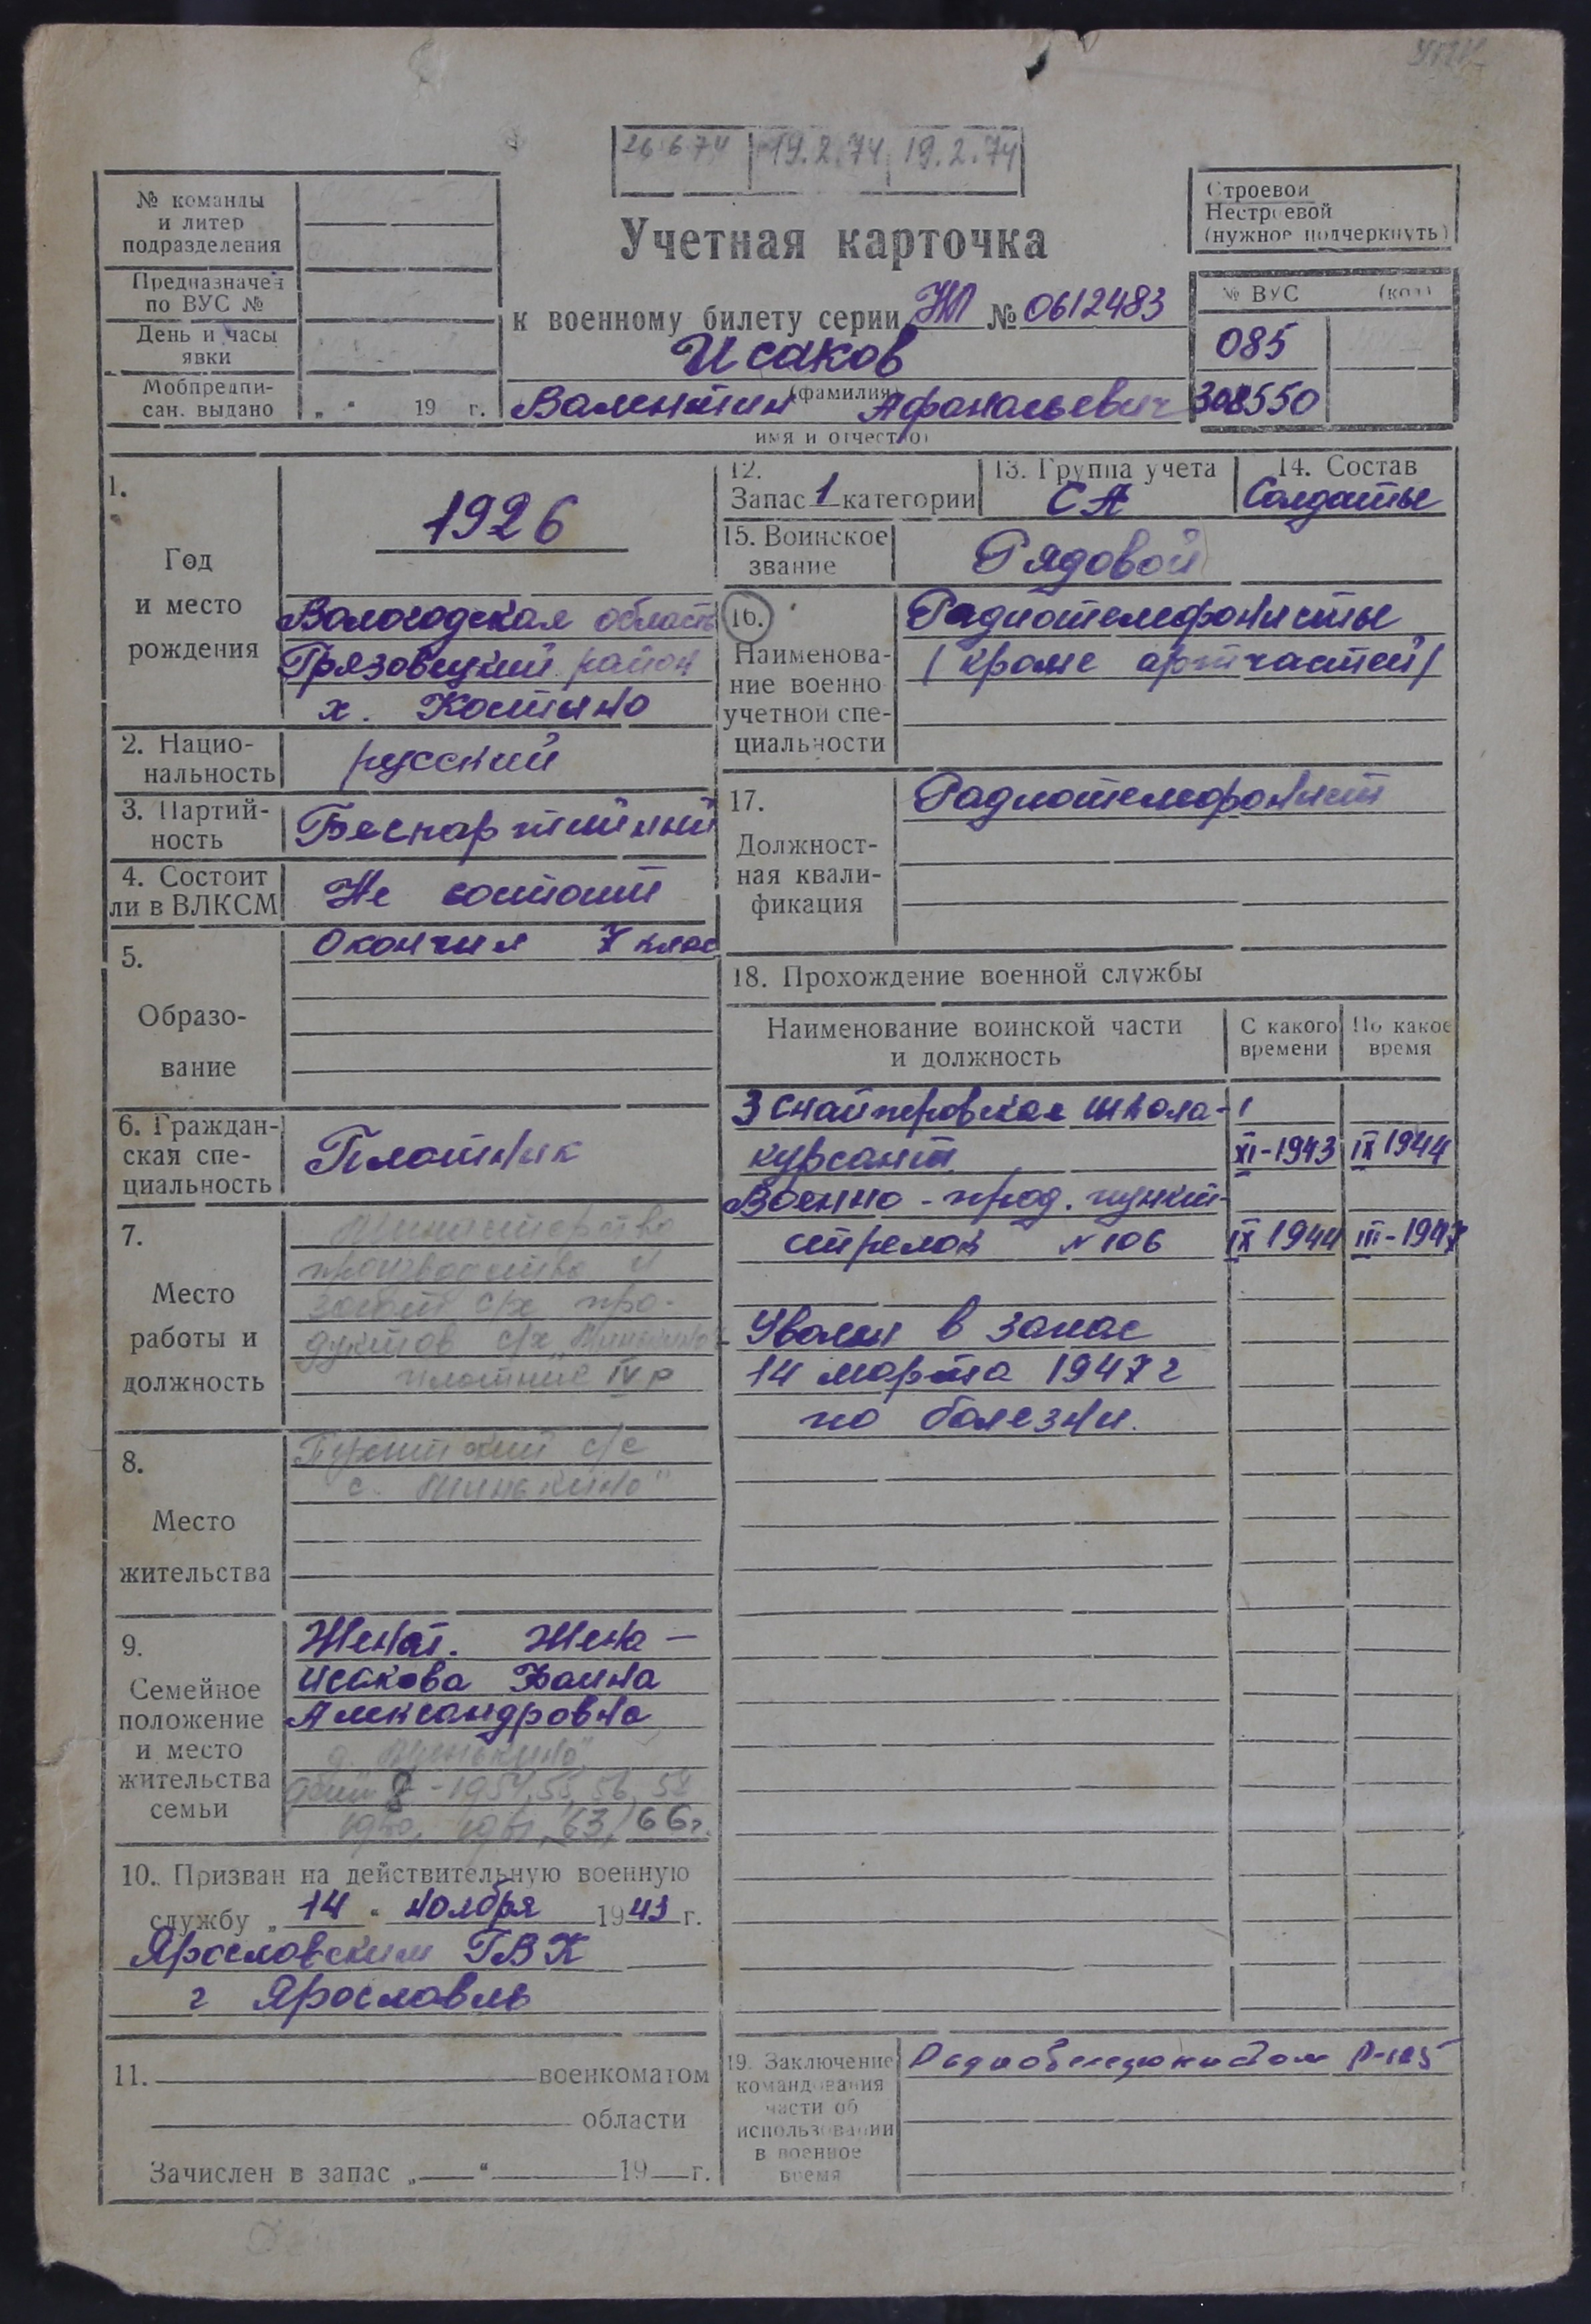 26.6.74 19.2.74 19.2.74
№ команды
и литер
подразделения
Предназначен
по ВУС №
День и часы
явки
Мобпредпи-
сан. выдано „ “ 19 г.
Учетная карточка
к военному билету серии НП № 0612483
Исаков
(фамилия)
Валентин Афанасьевич
имя и отчество
Строевой
Нестроевой
(нужное подчеркнуть)
№ ВУС (код)
085
308550
1.
Год
и место
рождения
1926
Вологодская область
Грязовецкий район
х. Костыно
2. Нацио-
нальность
русский
3. Партий-
ность
Беспартийный
4. Состоит
ли в ВЛКСМ
Не состоит
5.
Образо-
вание
Окончил 7 клас
6. Граждан-
ская спе-
циальность
Плотник
7.
Место
работы и
должность
Министерство
производства и
загот с/х про-
дуктов с/х „Минькино“
плотник IV р
8.
Место
жительства
с/с
с. „Минькино“
9.
Семейное
положение
и место
жительства
семьи
Женат. Жена —
Исакова Фаина
Александровна
д. „Минькино“
8 - 1954, 55, 56, 58
1961, 63, 66 г.
10. Призван на действительную военную
службу „14“ ноября 1943 г.
Ярославским ГВК
г Ярославль
11. военкоматом
области
Зачислен в запас „ “ 19 г.
12.
Запас 1 категории
13. Группа учета
СА
14. Состав
Солдаты
15. Воинское
звание
Рядовой
16.
Наименова-
ние военно
учетной спе-
циальности
Радиотелефонисты
(кроме артчастей)
17.
Должност-
ная квали-
фикация
Радиотелефонист
18. Прохождение военной службы
Наименование воинской части
и должность
С какого
времени
По какое
время
3 снайперовская школа-
курсант XI-1943 IX 1944
Военно-прод. пункт-
стрелок № 106 IX 1944 III-1947
Уволен в запас
14 марта 1947 г
по болезни.
19. Заключение
командования
части об
использовании
в военное
время
Р-105